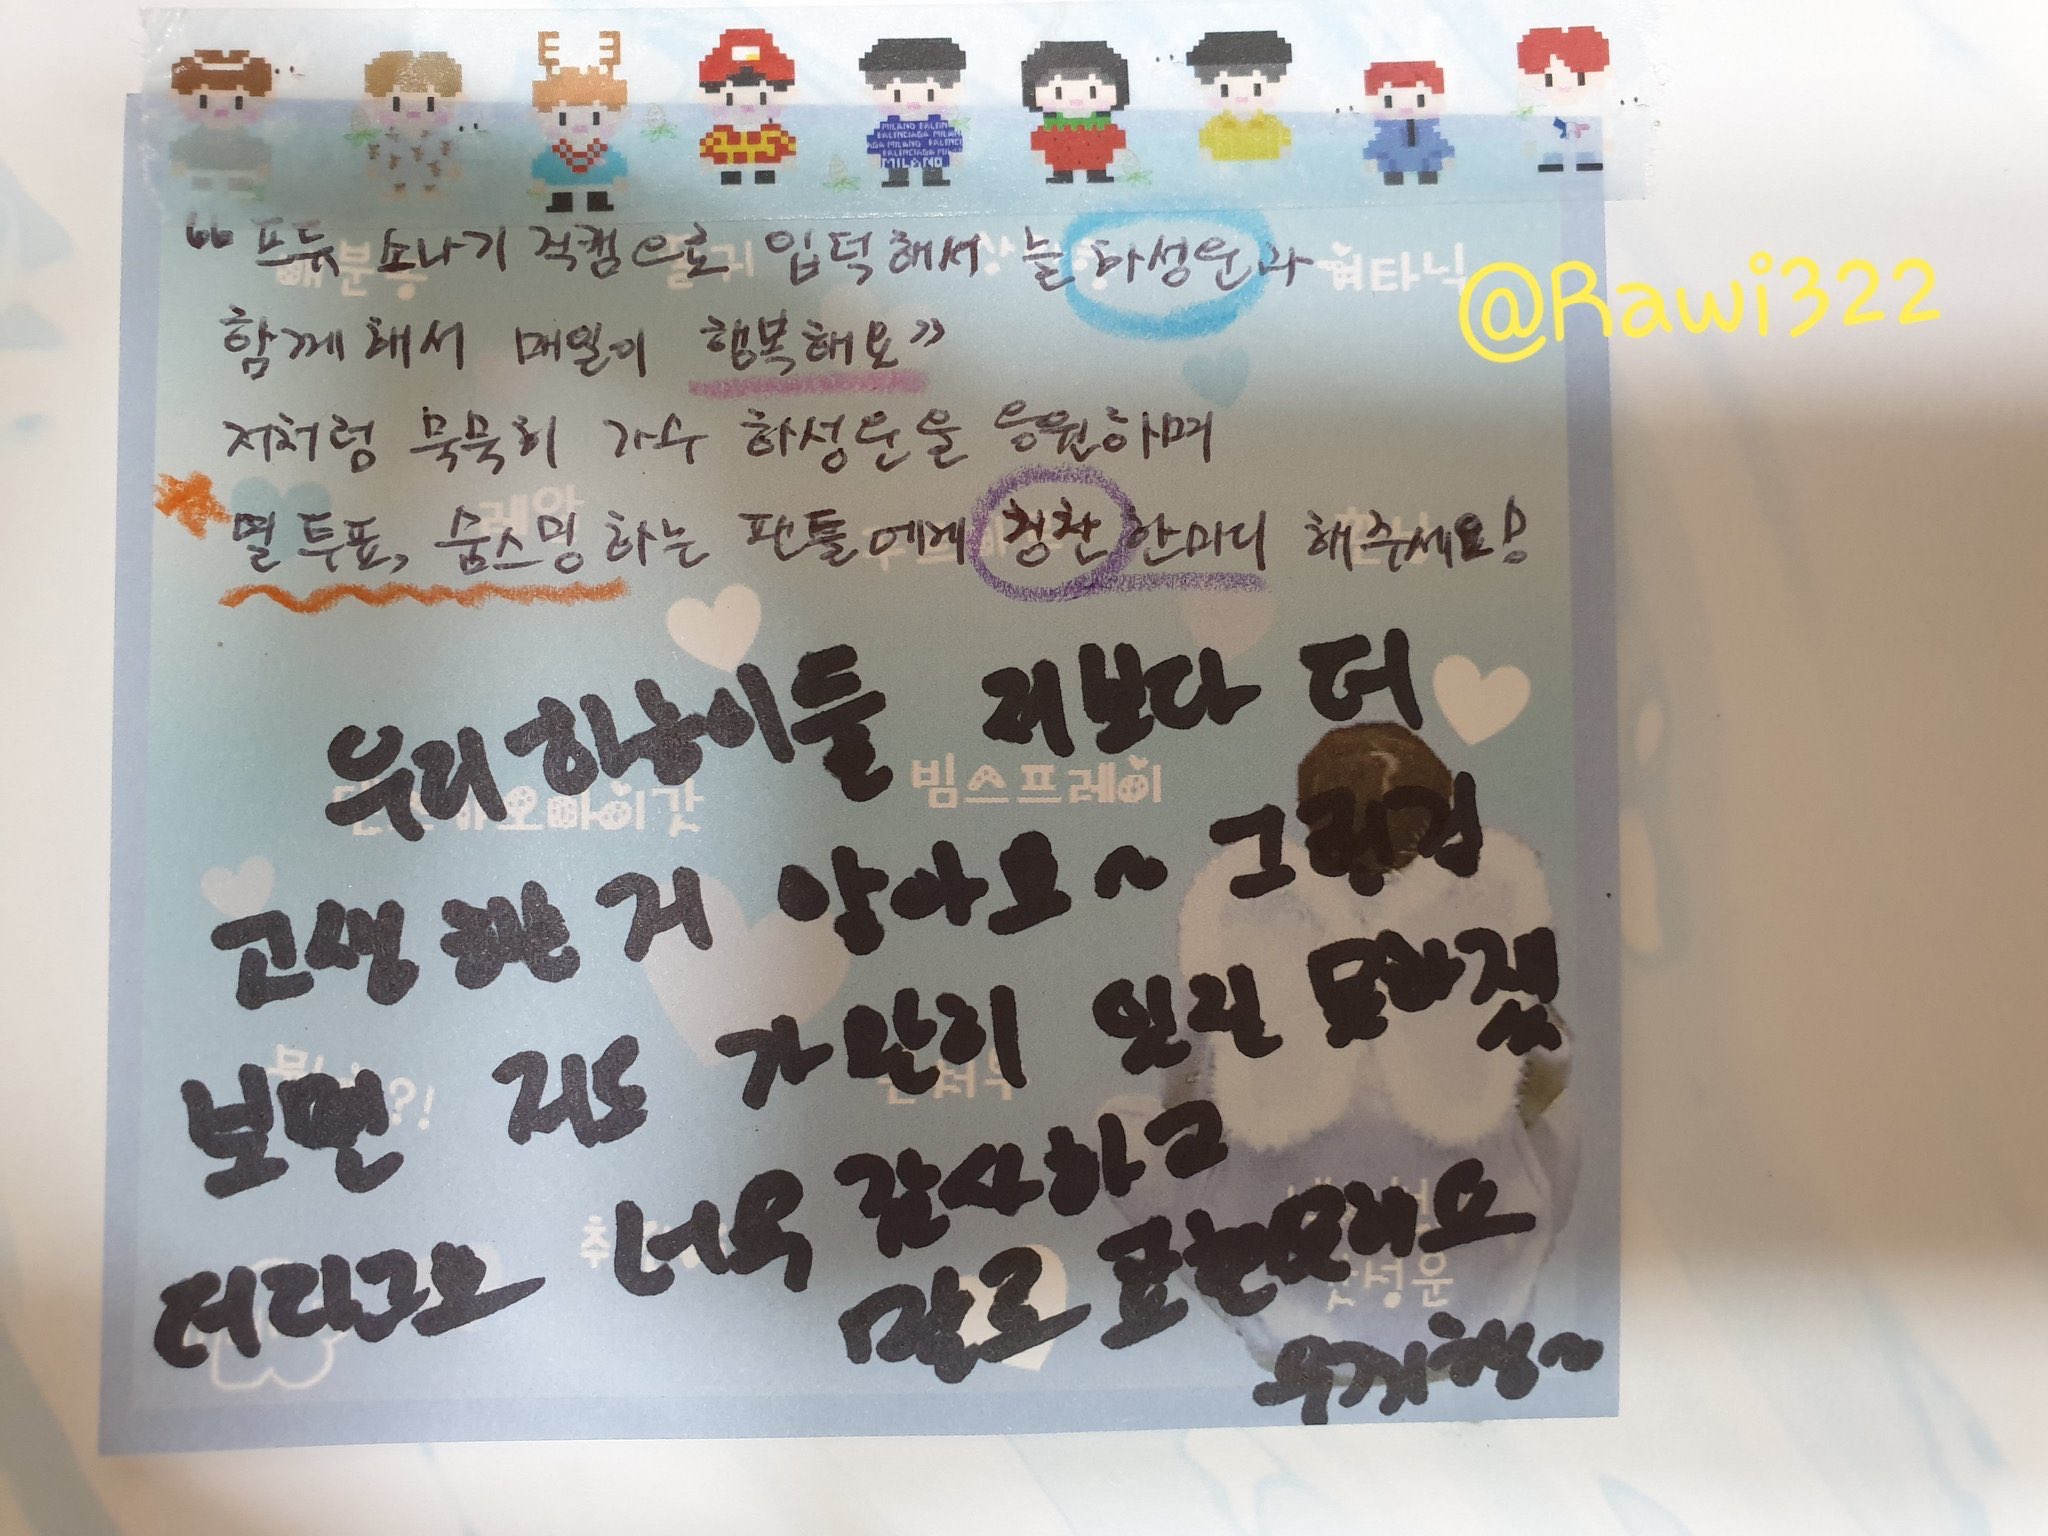 “프듀 소나기 직캠으로 입덕해서 늘 하성운과
@Rawi322
함께해서 매일이 행복해요”
저처럼 묵묵히 가수 하성운을 응원하며
멜투표, 숨스밍하는 팬들에게 칭찬 한마디 해주세요!
우리 하늘이들 저보다 더
빔스프레이
고생 한 거 알아요~ 그런거
보면 저도 가만히 있진 못하겠
더라구요 너무 감사하고
말로 표현모해요
우께행~